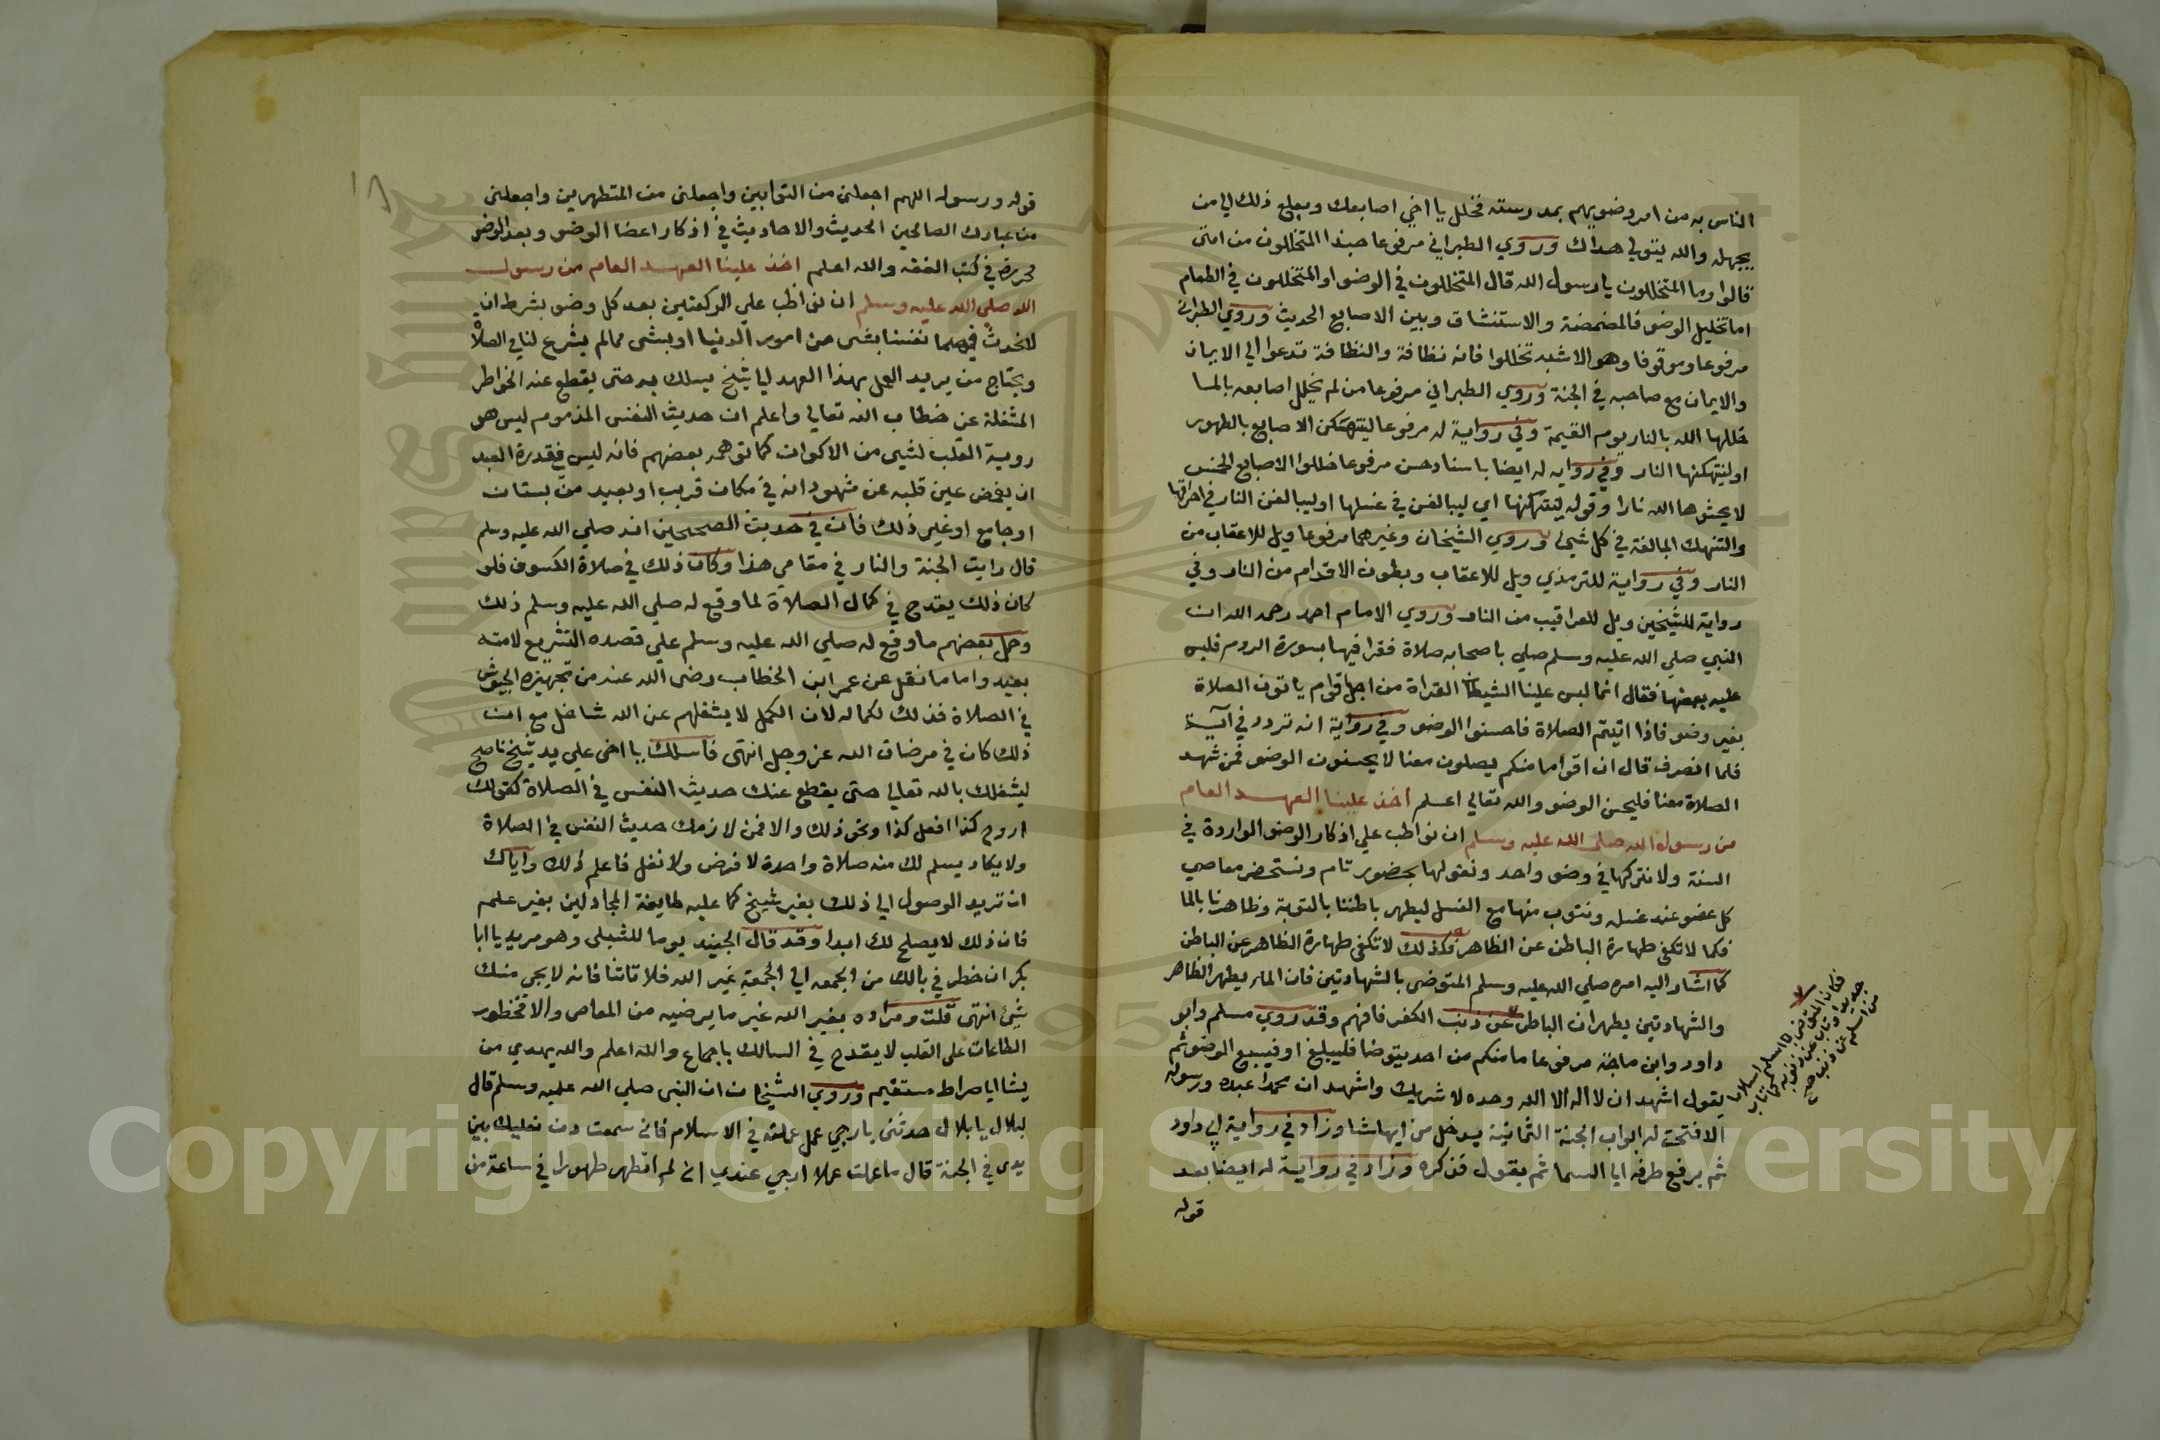 الناس به من امر وضويهم بمدرسته فخلل يا اخي اصابعك وبلغ ذلك الي من
يجهله والله يتولي هداك وروي الطبراني مرفوعا حبذا المتخللون من امتي
قالوا وما المتخللون يا رسول الله قال المتخللون في الوضو والمتخللون في الطعام
اما تخليل الوضو فالمضمضة والاستنشاق وبين الاصابع الحديث وروي الطبراني
مرفوعا وموقوفا وهو الاشبه تخللوا فانه نظافة والنظافة تدعوا الي الايمان
والايمان مع صاحبه في الجنة وروي الطبراني مرفوعا من لم يخلل اصابعه بالما
خللها الله بالنار يوم القيمة وفي رواية له مرفوعا لتنتهكن الاصابع بالطهور
او لتنتهكنها النار وفي رواية له ايضا باسناد حسن مرفوعا خللوا الاصابع الخمس
لا يحشوها الله نارا وقوله لتنتهكنها اي ليبالغن في غسلها او ليبالغن النار في احراقها
والتنهك المبالغة في كل شيء وروي الشيخان وغيرهما مرفوعا ويل للاعقاب من
النار وفي رواية للترمذي ويل للاعقاب وبطون الاقدام من النار وفي
رواية للشيخين ويل للعراقيب من النار وروي الامام احمد رحمه الله ان
النبي صلي الله عليه وسلم صلي باصحابه صلاة فقرا فيها بسورة الروم فلبس
عليه بعضها فقال انما لبس علينا الشيطان القراة من اجل اقوام ياتون الصلاة
بغير وضو فاذا اتيتم الصلاة فاحسنوا الوضو وفي رواية انه تردد في آية
فلما انصرف قال ان اقواما منكم يصلون معنا لا يحسنون الوضو فمن شهد
الصلاة معنا فليحسن الوضو والله تعالي اعلم اخذ علينا العهد العام
من رسول الله صلى الله عليه وسلم ان نواظب علي اذكار الوضو الواردة في
السنة ولا نتركها في وضو واحد ونقولها بحضور تام ونستحضر معاصي
كل عضو عند غسله ونتوب منها مع الغسل ليطهر باطننا بالتوبة وظاهرنا بالما
فكما لا تكفي طهارة الباطن عن الظاهر فكذلك لا تكفي طهارة الظاهر عن الباطن
كما اشار اليه امره صلي الله عليه وسلم المتوضي بالشهادتين فان الما يطهر الظاهر
والشهادتين يطهران الباطن عن ذنب الكفر فافهم وقد روي مسلم وابو
داود وابن ماجة مرفوعا ما منكم من احد يتوضا فليبلغ او فيسبغ الوضو ثم
يقول اشهد ان لا اله الا الله وحده لا شريك واشهد ان محمدا عبده ورسوله
الا فتحت له ابواب الجنة الثمانية يدخل من ايها شا وزاد في رواية ابي داود
ثم يرفع طرفه الي السما ثم يقول فذكره وزاد في رواية له ايضا بعد
قوله
فكان المتوضي اسلم اسلاما
جديدا وتاب عن ذنوبه كما تاب
من اسلم عن ذنب
صح
قوله ورسوله اللهم اجعلني من التوابين واجعلني من المتطهرين واجعلني
من عبادك الصالحين الحديث والاحاديث في اذكار اعضا الوضو وبعد الوضو
محررة في كتب الفقه والله اعلم اخذ علينا العهد العام من رسول
الله صلي الله عليه وسلم ان نواظب علي الركعتين بعد كل وضو بشرط ان
لا نحدث فيهما نفسنا بشي من امور الدنيا او بشي مما لم يشرع لنا في الصلاة
ويحتاج من يريد العمل بهذا العهد الي شيخ يسلك به حتى يقطع عنه الخواطر
المشغلة عن خطاب الله تعالي واعلم ان حديث النفس المذموم ليس هو
روية القلب لشي من الاكوان كما توهمه بعضهم فانه ليس في قدرة العبد
ان يغمض عين قلبه عن شهود انه في مكان قريب او بعيد من بستان
او جامع او غير ذلك فان في حديث الصحيحين انه صلي الله عليه وسلم
قال رايت الجنة والنار في مقامي هذا وكان ذلك في صلاة الكسوف فلو
كان ذلك يقدح في كمال الصلاة لما وقع له صلي الله عليه وسلم ذلك
وحمل بعضهم ما وقع له صلي الله عليه وسلم علي قصده التشريع لامته
بعيد واما ما نقل عن عمر ابن الخطاب رضي الله عنه من تجهيزه الجيوش
في الصلاة فذلك لكماله لان الكمل لا يشغلهم عن الله شاغل مع ان
ذلك كان في مرضات الله عز وجل انتهى فاسلك يا اخي علي يد شيخ ناصح
ليشغلك بالله تعالي حتى يقطع عنك حديث النفس في الصلاة كقولك
اروح كذا افعل كذا ونحو ذلك والا فمن لازمك حديث النفس في الصلاة
ولا يكاد يسلم لك منه صلاة واحدة لا فرض ولا نفل فاعلم ذلك واياك
ان تريد الوصول الي ذلك بغير شيخ كما عليه طايفة المجادلين بغير علم
فان ذلك لا يصلح لك ابدا وقد قال الجنيد يوما للشبلي وهو مريد يا ابا
بكر ان خطر في بالك من الجمعه الي الجمعة غير الله فلا تاتنا فانه لا يجي منك
شيء انتهى قلت ومراده بغير الله غير ما يرضيه من المعاصي والا فخطور
الطاعات على القلب لا يقدح في السالك باجماع والله اعلم والله يهدي من
يشا الي صراط مستقيم وروي الشيخان ان النبي صلي الله عليه وسلم قال
لبلال يا بلال حدثني بارجي عمل عملته في الاسلام فاني سمعت دف نعليك بين
يدي في الجنة قال ما عملت عملا ارجي عندي اني لم اتطهر طهورا في ساعة من
Copyright © King Saud University